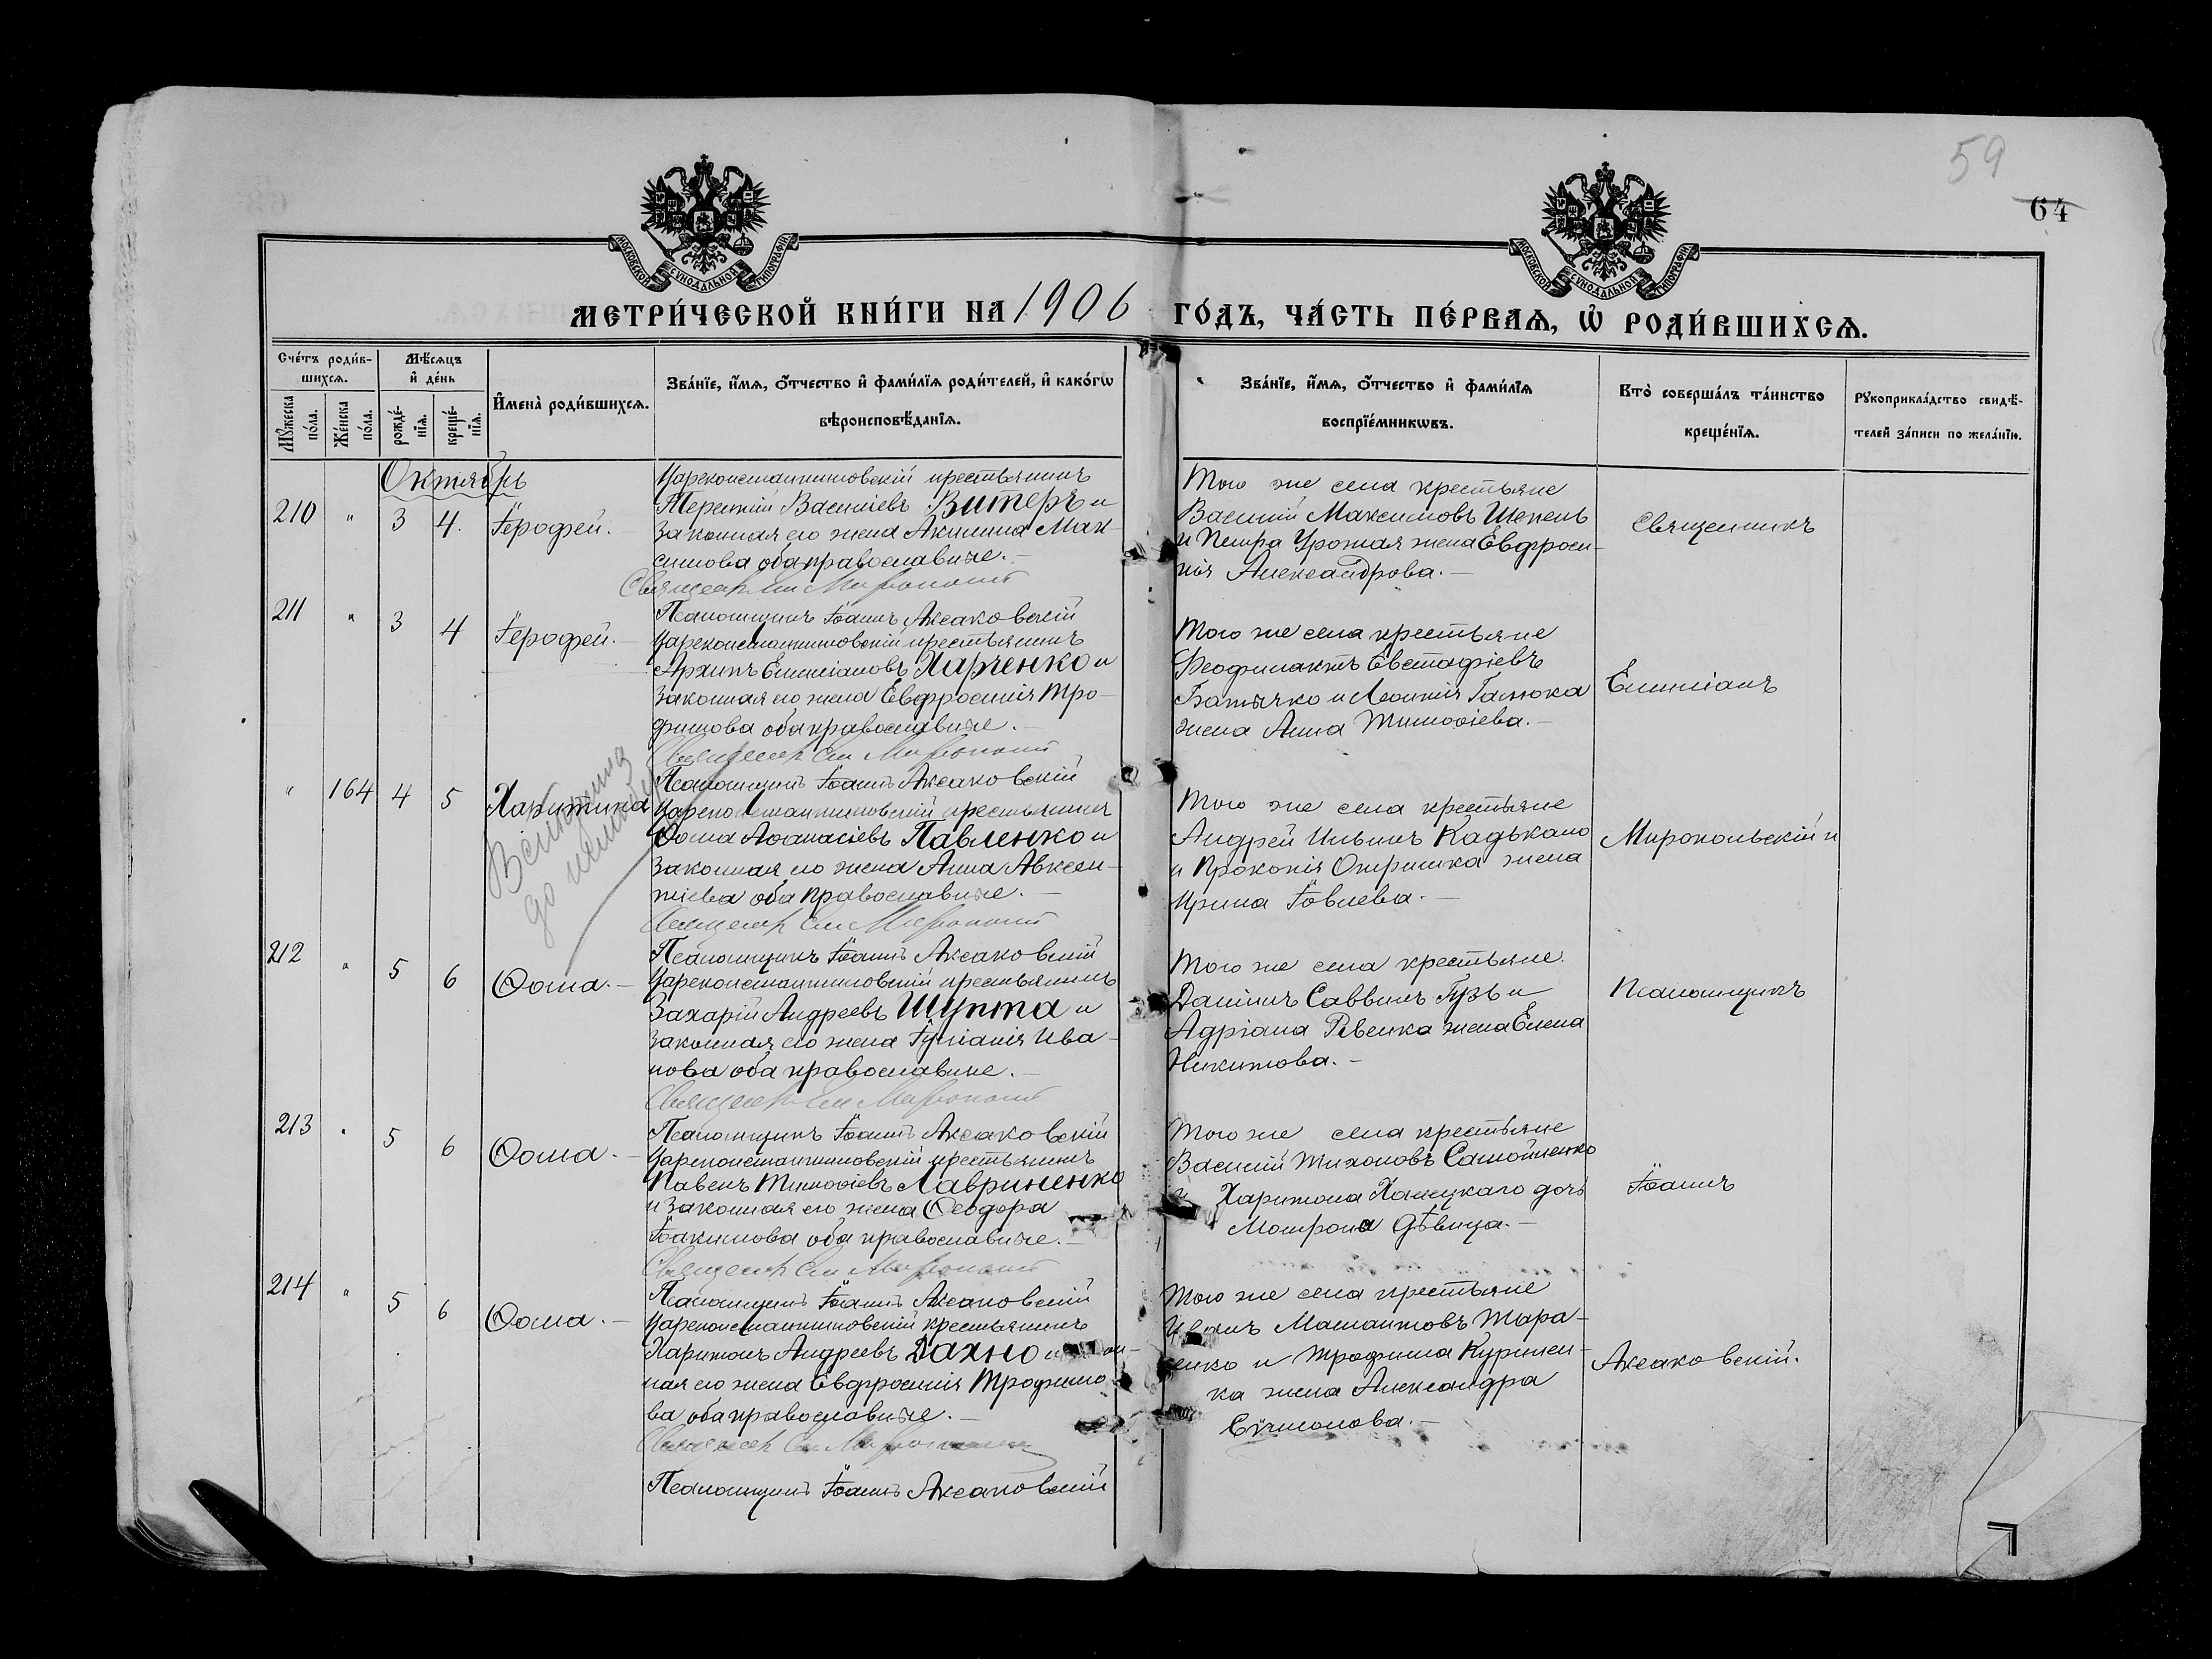 59
64
МОСКОВСКОЙ СѴНОДАЛЬНОЙ ТИПОГРАФІИ
МОСКОВСКОЙ СѴНОДАЛЬНОЙ ТИПОГРАФІИ
МЕТРИ́ЧЕСКОЙ КНИ́ГИ НА 1906 ГО́ДЪ, ЧА́СТЬ ПЕ́РВАѦ, Ѡ РОДИ́ВШИХСѦ.
Сче́тъ роди́в-
шихсѧ.
Мѣ́сѧцъ
и҆ де́нь
Мꙋ́жеска
по́ла.
Же́нска
по́ла.
рожде́-
нїѧ.
креще́-
нїѧ.
И҆мена̀ роди́вшихсѧ.
Зва́нїе, и҆́мѧ, ѻ҆́тчество и҆ фами́лїѧ роди́телей, и҆ како́гѡ
вѣроисповѣ́данїѧ.
Зва́нїе, и҆́мѧ, ѻ҆́тчество и҆ фами́лїѧ
воспрїе́мникѡвъ.
Кто̀ соверша́лъ та́инство
креще́нїѧ.
Рꙋкоприкла́дство свидѣ́-
телей за́писи по жела́нїю.
Октябрь
210 " 3 4. Іерофей.
Цареконстантиновскій крестьянинъ
Терентій Василіевъ Витеръ и
законная его жена Акилина Мак-
симова оба православные.
Того же села крестьяне
Василій Максимовъ Шепель
и Петра Урожая жена Евфроси-
нія Александрова.
Священникъ
Псаломщикъ Іоаннъ Аксаковскій
211 " 3 4 Іерофей.
Цареконстантиновскій крестьянинъ
Архипъ Емиліановъ Харченко и
законная его жена Евфросинія Тро-
фимова оба православные.
Того же села крестьяне
Феофилактъ Евстафіевъ
Батычко и Леонтія Галюка
жена Анна Тимофіева.
Емиліанъ
Псаломщикъ Іоаннъ Аксаковскій
" 164 4 5 Харитина
Цареконстантиновскій крестьянинъ
Ѳома Аѳанасіевъ Павленко и
законная его жена Анна Авксен-
тіева оба православные.
Того же села крестьяне
Андрей Ильинъ Кадькало
и Прокопія Онришка жена
Ирина Іовлева.
Миропольскій и
Псаломщикъ Іоаннъ Аксаковскій
212 " 5 6 Ѳома.
Цареконстантиновскій крестьянинъ
Захарій Андреевъ Шупта и
законная его жена Іуліанія Ива-
нова оба православные.
Того же села крестьяне
Даніилъ Саввинъ Гузь и
Адріана Ревенка жена Елена
Никитова.
Псаломщикъ
Псаломщикъ Іоаннъ Аксаковскій
213 " 5 6 Ѳома.
Цареконстантиновскій крестьянинъ
Павелъ Тимофіевъ Лавриненко
и законная его жена Ѳеодора
Іоакимова оба православные.
Того же села крестьяне
Василій Тихоновъ Самойленко
и Харитона Халецкаго дочь
Матрона дѣвица.
Іоаннъ
Псаломщикъ Іоаннъ Аксаковскій
214 " 5 6 Ѳома.
Цареконстантиновскій крестьянинъ
Харитонъ Андреевъ Дахно и
ная его жена Евфросинія Трофимо-
ва оба православные.
Того же села крестьяне
Иванъ Мамантовъ Тара-
сенко и Трофима Курилен-
ка жена Александра
Сѵмонова.
Аксаковскій.
Псаломщикъ Іоаннъ Аксаковскій